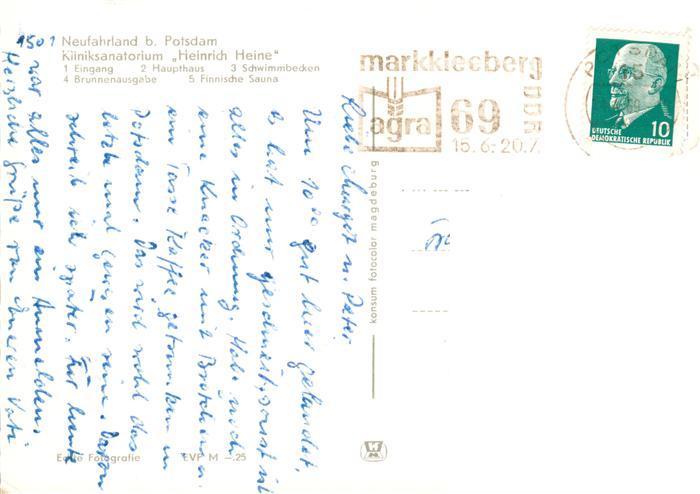 Neufahrland b. Potsdam
Kliniksanatorium „Heinrich Heine“
1 Eingang 2 Haupthaus 3 Schwimmbecken
4 Brunnenausgabe 5 Finnische Sauna
markkleeberg
DDR
agra
69
15.6.-20.7.
DEUTSCHE
DEMOKRATISCHE REPUBLIK
10
konsum fotocolor magdeburg
Echte Fotografie EVP M –.25
u. Peter
Um 10 gut hier gelandet,
es hat nur geschneit, sonst ist
alles in Ordnung. Habe noch
eine Knacker mit Brötchen u.
eine Tasse Kaffee getrunken in
Potsdam. Das wird wohl das
letzte mal gewesen sein. Davon
schreib ich später. Für heute
war alles nur ein
Herzliche Grüße von Eurem Vati